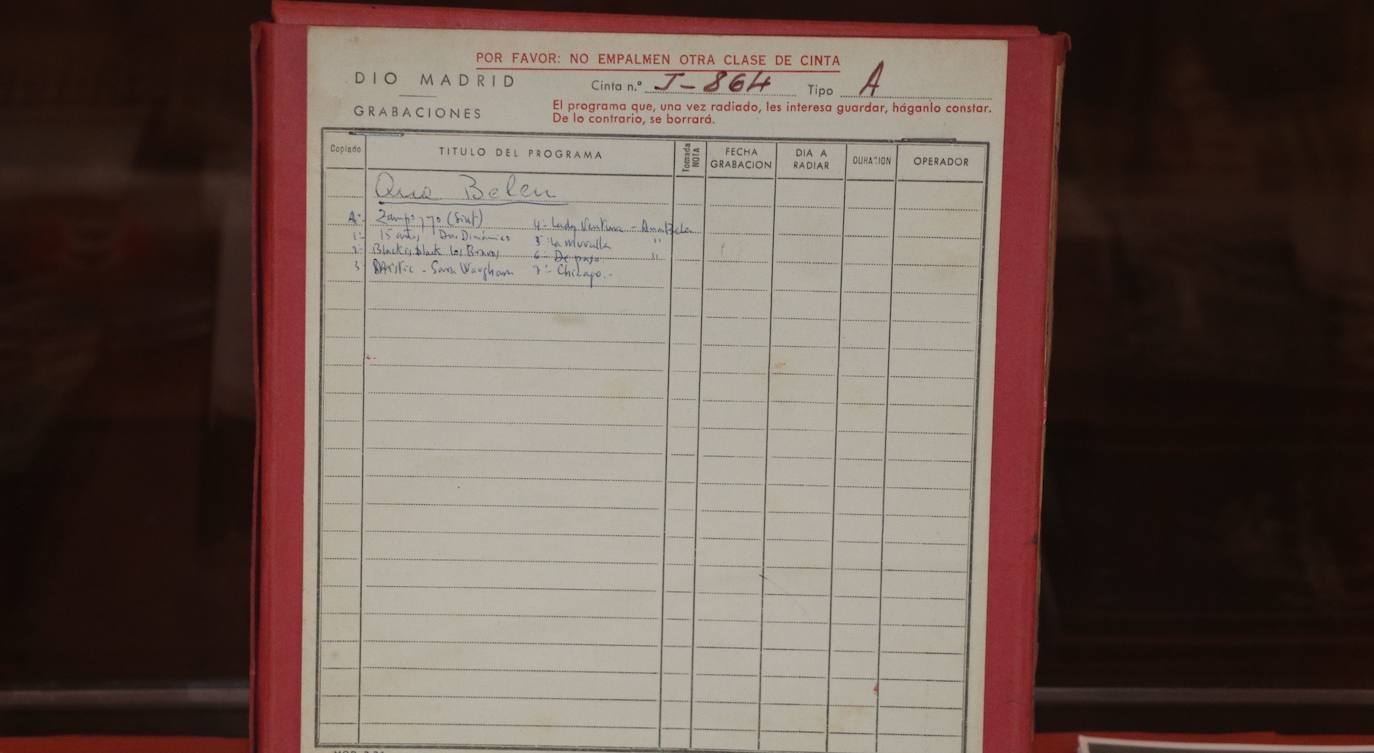 POR FAVOR: NO EMPALMEN OTRA CLASE DE CINTA
DIO MADRID
Cinta n.º J-864 Tipo A
GRABACIONES
El programa que, una vez radiado, les interesa guardar, háganlo constar.
De lo contrario, se borrará.
Copiado
TITULO DEL PROGRAMA
Tomada NOTA
FECHA GRABACION
DIA A RADIAR
DURACION
OPERADOR
Ana Belen
4- Lady Ventura - Ana Belen
1- 15 años, Duo Dinámico
5 La Muralla "
2- Black is black Los Bravos
6- De paso "
3 Mistic - Sara Vaugham
7- Chicago.-